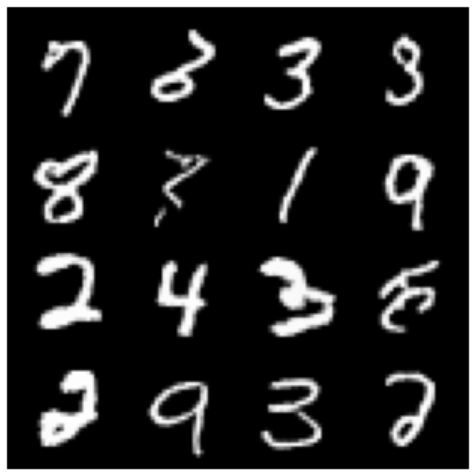 7 3
8 1 9
2 4 3
2 9 3 2